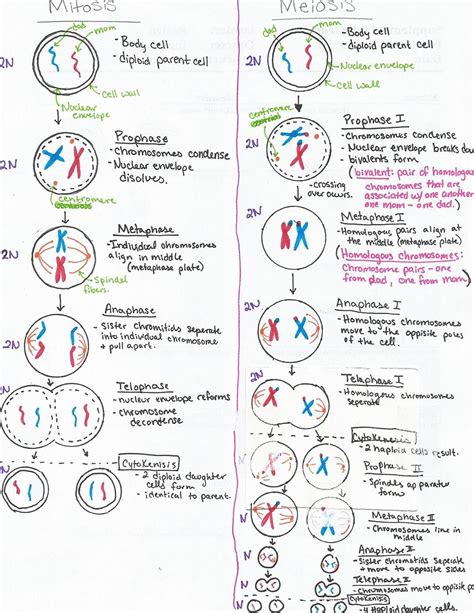 Mitosis
dad
mom
- Body cell
- diploid parent cell
2N
Cell wall
Nuclear
envelope
Prophase
- Chromosomes condense
- Nuclear envelope
disolves.
2N
centromere
Metaphase
- Individual chromosomes
align in middle
(metaphase plate)
2N
Spindel
fibers.
Anaphase
- Sister Chromitids seperate
into individual chromosome
+ pull apart.
2N
Telophase
- nuclear envelope reforms
- chromosome
decondense
Cytokenisis
- 2 diploid daughter
cells form
- identical to parent.
N
N
Meiosis
dad
mom
- Body cell
- diploid parent cell
2N
Nuclear envelope
Cell wall
Prophase I
- Chromosomes condense
- Nuclear envelope breaks do
- bivalents form
(bivalent: pair of homologous
chromosomes that are
associated w/ one another
one mom - one dad.)
centromere
2N
- crossing
over occurs.
Metaphase I
- Homologous pairs align at
the middle (metaphase plate)
(Homologous chromosomes:
Chromosome pairs - one
from dad, one from mom)
2N
Anaphase I
- Homologous chromosomes
move to the opposite poles
of the cell.
2N
Telaphase I
- Homologous chromosomes
seperate
2N
Cytokenisis
- 2 haploid cells result.
Prophase II
- Spindles apparatus
forms
N
N
Metaphase II
- Chromosomes line in
middle
N
N
Anaphase II
- Sister chromitids seperate
+ move to opposite sides
N
Telephase II
Cytokenisis
- 4 Haploid daughter cells
N